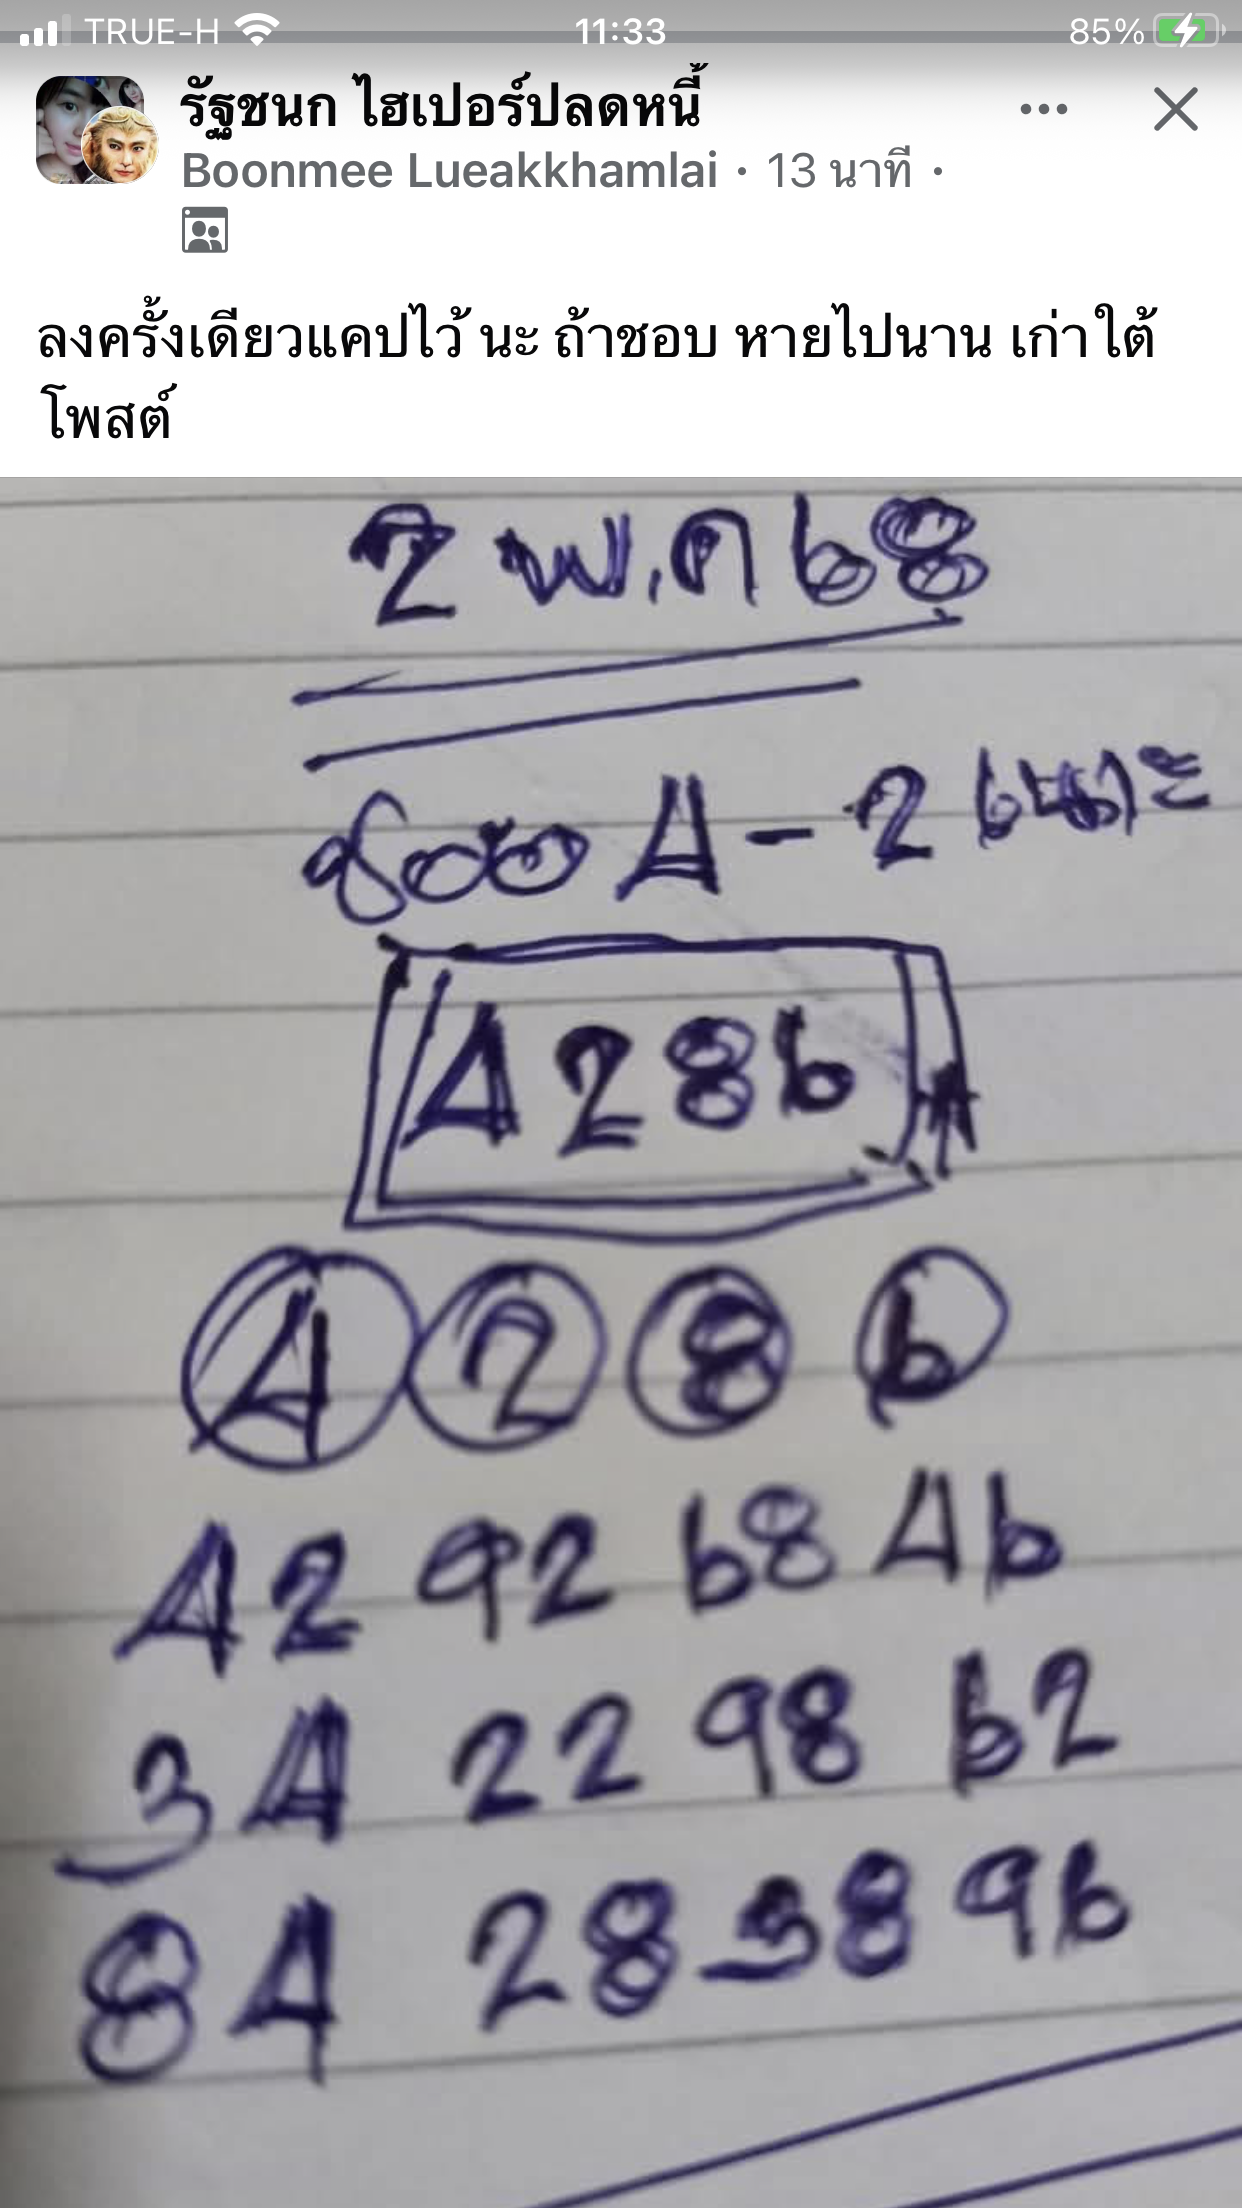 TRUE-H 11:33 85%
รัฐชนก ไฮเปอร์ปลดหนี้
Boonmee Lueakkhamlai · 13 นาที ·
ลงครั้งเดียวแคปไว้ นะ ถ้าชอบ หายไปนาน เก่าใต้
โพสต์
2 พ.ค 68
ชอบ 4 - 2
4 2 8 6
4 2 8 6
42 92 68 46
34 22 98 62
84 28 38 96